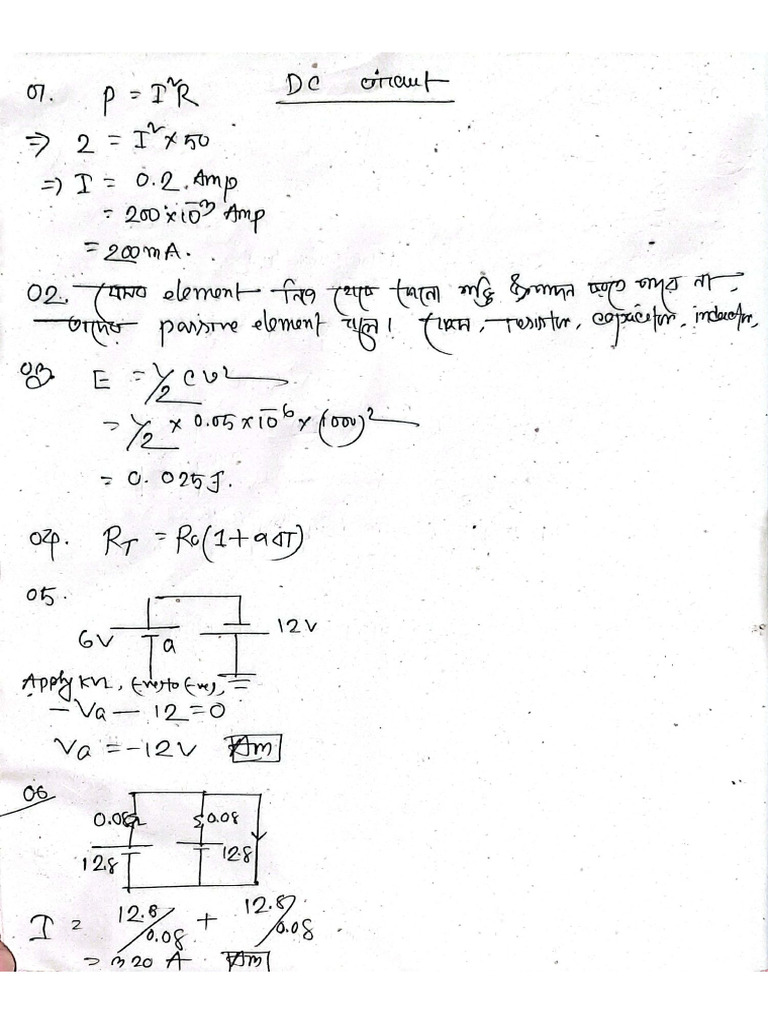 DC circuit
01. P = I²R
⇒ 2 = I² × 50
⇒ I = 0.2 Amp
= 200 × 10⁻³ Amp
= 200 mA.
02. যেসব element নিজ থেকে কোনো শক্তি উৎপাদন করতে পারে না,
তাদের passive element বলে। যেমন, resistor, capacitor, inductor,
03. E = 1/2 CV²
= 1/2 × 0.05 × 10⁻⁶ × (1000)²
= 0.025 J.
04. R_T = R₀(1+αΔT)
05.
6V a 12V
Apply KVL, (+ve) to (-ve),
-Va - 12 = 0
Va = -12V Am
06
0.08Ω 0.08
12.8 12.8
I = 12.8/0.08 + 12.8/0.08
= 320 A Am